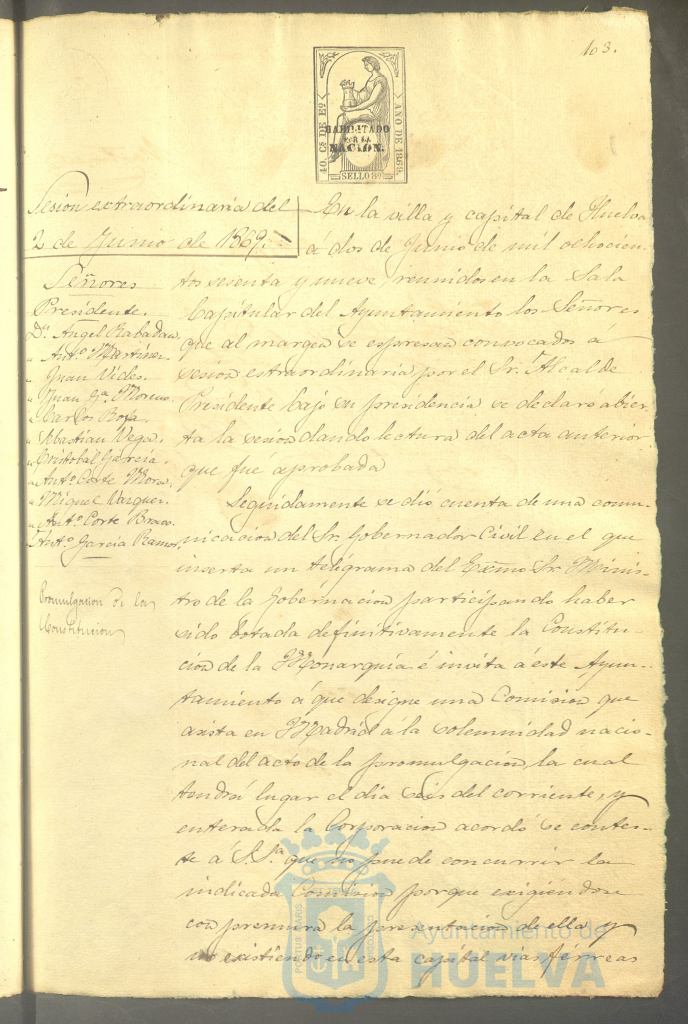 103.
HABILITADO
POR LA
NACION.
40 Cs DE Eo
AÑO DE 1869.
SELLO 89
Sesion extraordinaria del
2 de Junio de 1869.
Señores
Presidente.
Dn. Angel Rabadan
" Anto. Martinez.
" Juan Vides.
" Juan Ga. Moreno
" Carlos Rofa.
" Sebastian Vega.
" Cristobal Garcia.
" Anto. Corte Mora.
" Miguel Vazquez.
" Anto. Corte Bravo.
" Anto. Garcia Ramos.
Promulgacion de la
Constitucion
En la villa y capital de Huelva
á dos de Junio de mil ochocien-
tos sesenta y nueve, reunidos en la Sala
Capitular del Ayuntamiento los Señores
que al margen se expresan convocados á
sesion extraordinaria por el Sr. Alcalde
Presidente bajo su presidencia se declaro abier-
ta la sesion dando lectura del acta anterior
que fué aprobada
Seguidamente se dió cuenta de una comu-
nicacion del Sr. Gobernador Civil en el que
inserta un telégrama del Exmo Sr. Minis-
tro de la Gobernacion participando haber
sido botada definitivamente la Constitu-
cion de la Monarquia é invita á este Ayun-
tamiento á que designe una Comision que
asista en Madrid á la solemnidad nacio-
nal del acto de la promulgacion, la cual
tendrá lugar el dia seis del corriente, y
enterada la Corporacion acordó se contes-
te á S.Sa. que no puede concurrir la
indicada Comision porque exigiendose
con premura la presentacion de ella y
no existiendo en esta capital vias férreas
Ayuntamiento de
HUELVA